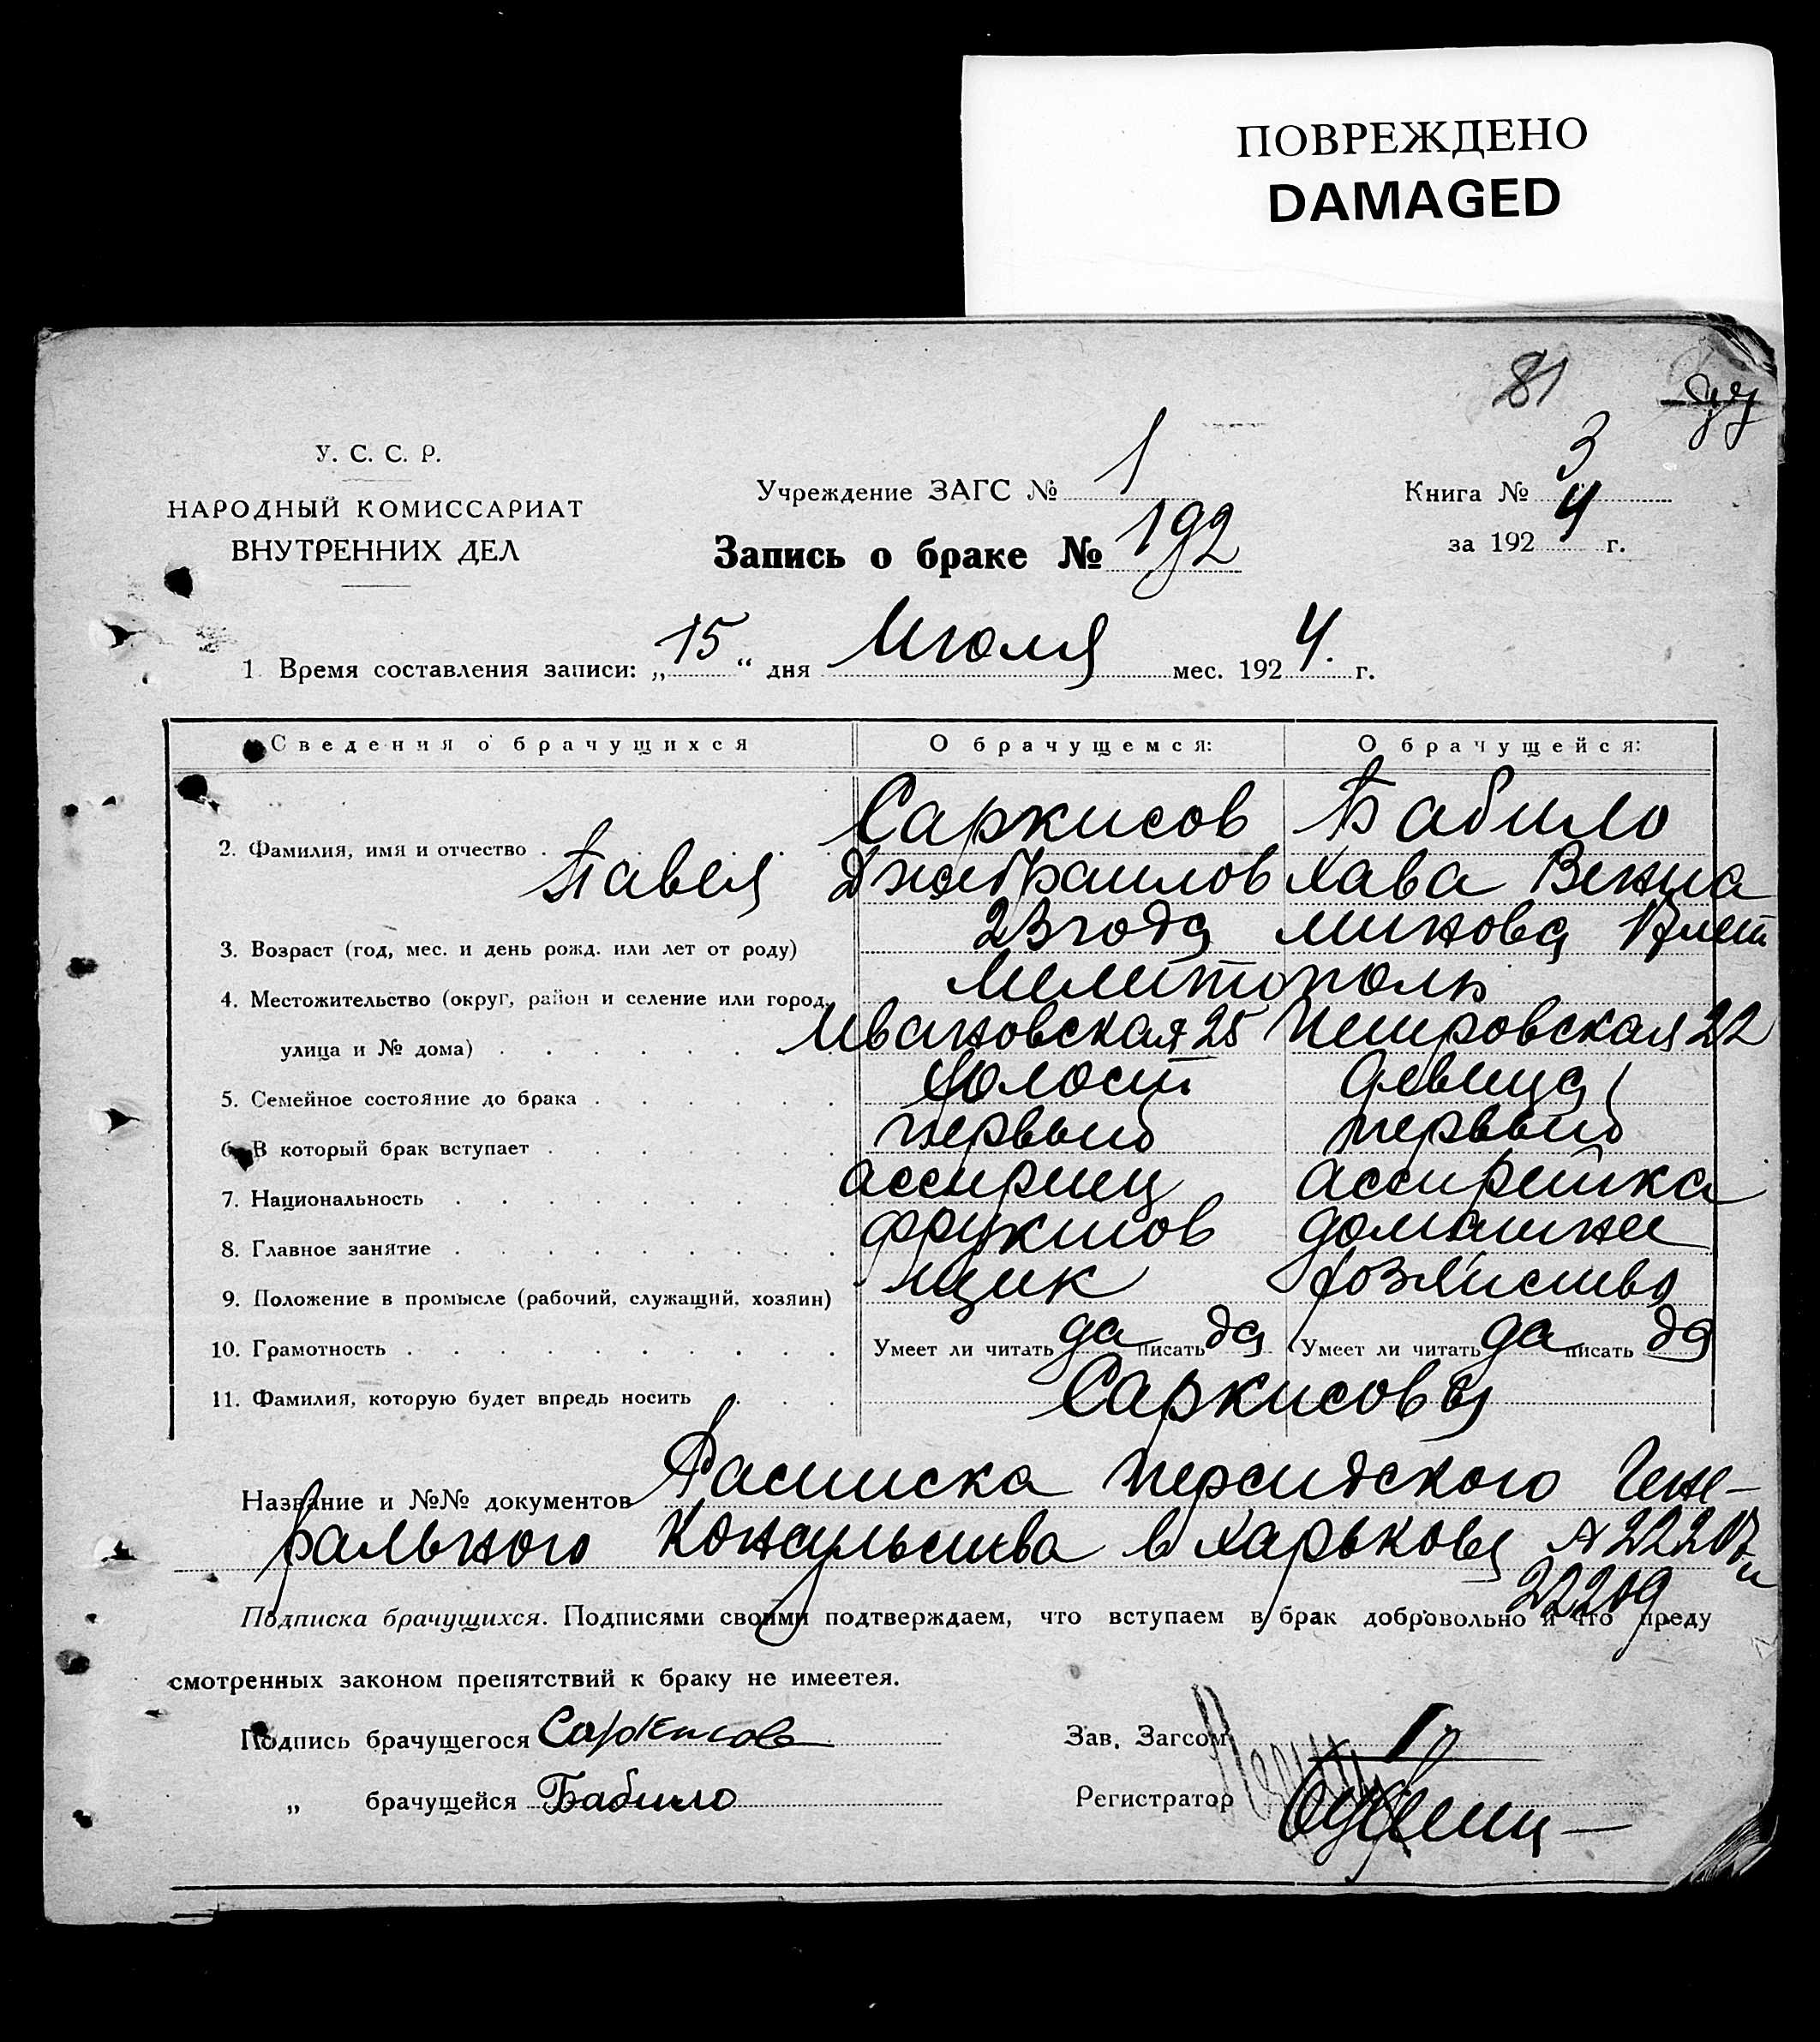 ПОВРЕЖДЕНО
DAMAGED
81
У. С. С. Р.
НАРОДНЫЙ КОМИССАРИАТ
ВНУТРЕННИХ ДЕЛ
Учреждение ЗАГС № 1
Запись о браке № 192
Книга № 3
за 1924 г.
1 Время составления записи: „15“ дня Июля мес. 1924. г.
Сведения о брачущихся О брачущемся: О брачущейся:
2. Фамилия, имя и отчество Саркисов Бабило
Павел Джебраилов Хава Вениа
3. Возраст (год, мес. и день рожд. или лет от роду) 23 года минова 17 лет
4. Местожительство (округ, район и селение или город, Мелитополь
улица и № дома) Ивановская 25 Петровская 22
5. Семейное состояние до брака холост девица
6. В который брак вступает первый первый
7. Национальность ассириец ассирийка
8. Главное занятие фруктов домашнее
9. Положение в промысле (рабочий, служащий, хозяин) щик хозяйство
10. Грамотность Умеет ли читать да писать да Умеет ли читать да писать да
11. Фамилия, которую будет впредь носить Саркисовы
Название и №№ документов Расписка Персидского Гене-
рального Консульства в Харькове № 22217 и
22219
Подписка брачущихся. Подписями своими подтверждаем, что вступаем в брак добровольно и что преду
смотренных законом препятствий к браку не имеетея.
Подпись брачущегося Саркисовъ
Зав. Загсом
„ брачущейся Бабило
Регистратор